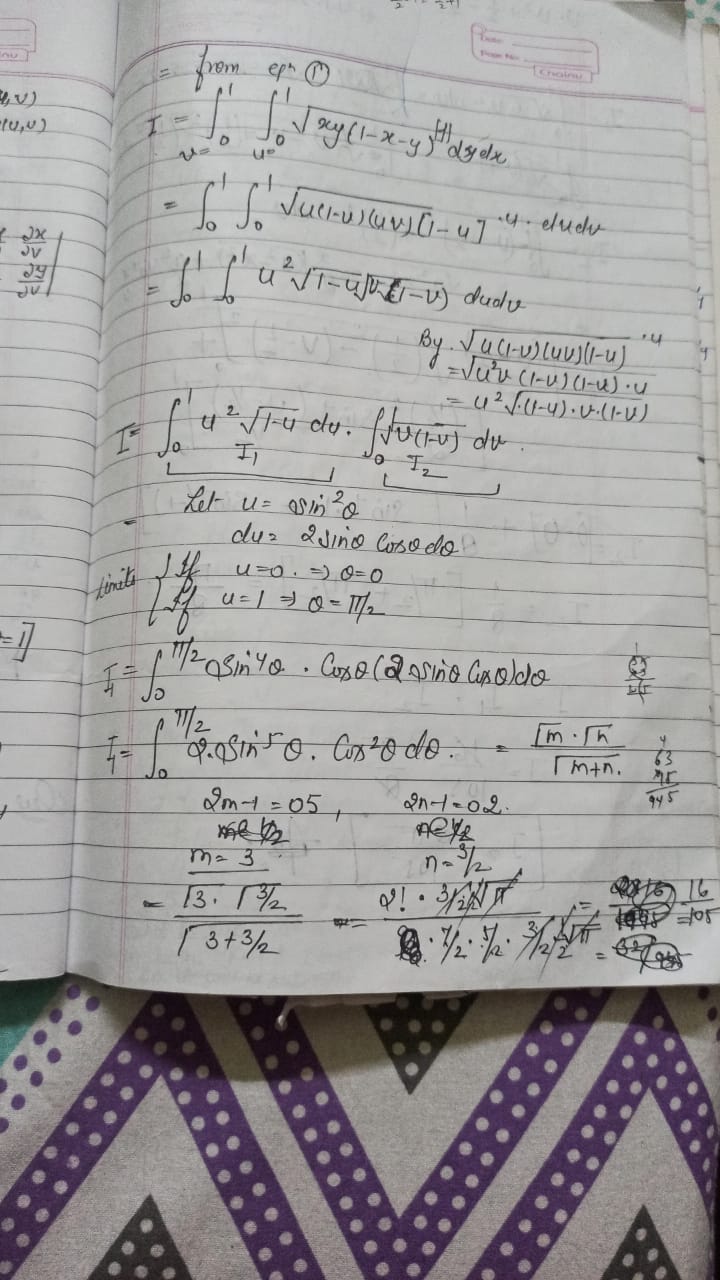 = from eqn ①
I = ∫₀¹ ∫₀¹ √xy(1-x-y) |J| dydx
v=0 u=0
= ∫₀¹ ∫₀¹ √u(1-v)(uv)[1-u] · u · dudv
= ∫₀¹ ∫₀¹ u² √1-u √v(1-v) dudv
By √u(1-v)(uv)(1-u) · u
= √u²v (1-v)(1-u) · u
= u² √(1-u)·v·(1-v)
I = ∫₀¹ u² √1-u du · ∫₀¹ √v(1-v) dv
I₁ I₂
Let u = sin²θ
du = 2sinθ cosθ dθ
Limits { If u=0 ⇒ θ=0
{ If u=1 ⇒ θ=π/2
I₁ = ∫₀^π/2 sin⁴θ · Cosθ (2 sinθ Cosθ) dθ
I₁ = ∫₀^π/2 2·Sin⁵θ · Cos²θ dθ. = Γm · Γn / Γm+n.
63
15
945
2m-1 = 05, 2n-1 = 02.
m = 3 n = 3/2
= Γ3 · Γ3/2 / Γ3+3/2 = 2! · 3/2 √π / 7/2 · 5/2 · 3/2 √π = 16/105
∂x/∂v
∂y/∂v
(u,v)
Date
Page No.